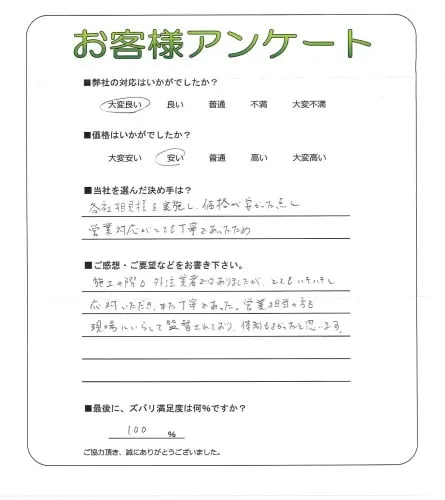 お客様アンケート
■弊社の対応はいかがでしたか？
大変良い 良い 普通 不満 大変不満
■価格はいかがでしたか？
大変安い 安い 普通 高い 大変高い
■当社を選んだ決め手は？
各社相見積を実施し、価格が安かった点と
営業対応がとても丁寧であったため
■ご感想・ご要望などをお書き下さい。
施工の際も外注業者ではありましたが、とてもハキハキと
応対いただき、また丁寧であった。営業担当の方も
現場にいらして監督されており、体制もよかったと思います。
■最後に、ズバリ満足度は何%ですか？
100 %
ご協力頂き、誠にありがとうございました。